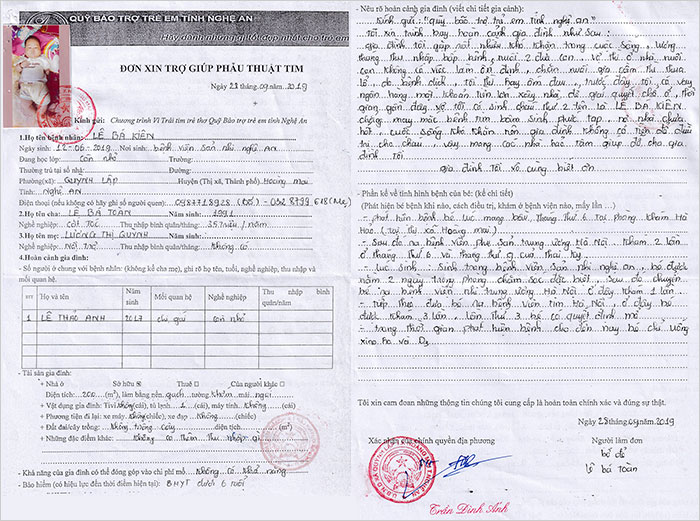 QUỸ BẢO TRỢ TRẺ EM TỈNH NGHỆ AN
Hãy dành những gì tốt đẹp nhất cho trẻ em
ĐƠN XIN TRỢ GIÚP PHẪU THUẬT TIM
Ngày 23 tháng 09 năm 2019
Kính gửi: Chương trình Vì Trái tim trẻ thơ Quỹ Bảo trợ trẻ em tỉnh Nghệ An
1.Họ tên bệnh nhân: LÊ BÁ KIÊN
Ngày sinh: 12-06-2019 Nơi sinh: bệnh viện sản nhi nghệ an
Đang học lớp: còn nhỏ Trường:
Thường trú tại số nhà: Đường:
Phường(xã): QUỲNH LẬP Huyện (Thị xã, Thành phố) Hoàng mai
Tỉnh: NGHỆ AN
Điện thoại (nếu không có hãy ghi số người quen):
2.Họ tên cha: LÊ BÁ TOÀN Năm sinh: 1991
Nghề nghiệp: Thu nhập bình quân/tháng: / năm
3.Họ tên mẹ: LƯƠNG THỊ QUỲNH Năm sinh:
Nghề nghiệp: Nội trợ Thu nhập bình quân/tháng: không có
4.Hoàn cảnh gia đình:
- Số người ở chung với bệnh nhân: (không kể cha mẹ), ghi rõ họ tên, tuổi, nghề nghiệp, thu nhập và
mối quan hệ.
STT Họ và tên Năm sinh Mối quan hệ Nghề nghiệp Thu nhập bình quân/năm
1 LÊ THẢO ANH 2017 chị gái còn nhỏ
- Tài sản gia đình:
+ Nhà ở Sở hữu Thuê Của người khác
Diện tích: 200 (m²), làm bằng nền: gạch tường: mái: ngói
+ Vật dụng gia đình: Tivi (cái), tủ lạnh 1 (cái), máy tính: không (cái)
+ Phương tiện đi lại: xe máy không (chiếc), xe đạp không (chiếc)
+ Đất đai/cây trồng: không trồng cây diện tích (m²)
+ Những đặc điểm khác: không có thêm thu nhập gì
- Khả năng của gia đình có thể đóng góp vào chi phí mổ: không có khả năng
- Bảo hiểm (có hiệu lực đến thời điểm hiện tại): BHYT dưới 6 tuổi
- Nêu rõ hoàn cảnh gia đình (viết chi tiết gia cảnh):
Kính gửi: "quỹ bảo trợ trẻ em tỉnh nghệ an"
Tôi xin trình bày hoàn cảnh gia đình như sau:
gia đình tôi gặp rất nhiều khó khăn trong cuộc sống, lương
thung thu nhập bấp bênh, nuôi 2 đứa con, vợ thì ở nhà nuôi
con không có việc làm ổn định, chăn nuôi gia cầm thì thua
lỗ do bệnh dịch, tôi thì hay ốm đau, trước đây tôi có vay
ngân hàng một khoản tiền lớn xây nhà, để giải quyết chỗ ở, thời
gian gần đây, vợ tôi có sinh cháu thứ 2 tên là LÊ BÁ KIÊN
chẳng may mắc bệnh tim bẩm sinh phức tạp, nợ nhà chưa
hết, cuộc sống khó khăn nên gia đình không có tiền để chữa
cho cháu, vậy mong các nhà hảo tâm giúp đỡ cho gia
đình tôi
gia đình tôi vô cùng biết ơn
- Phần kể về tình hình bệnh của bé: (kể chi tiết)
(Phát hiện bé bệnh khi nào, cách điều trị, khám ở bệnh viện nào, mấy lần ...)
- phát hiện bệnh bé lúc mang bầu, tháng thứ 6 tại phòng khám Hà
Hoa (tại thị xã Hoàng mai)
- Sau đó ra bệnh viện Phụ sản trung ương Hà Nội khám 2 lần
ở tháng thứ 6 và tháng thứ 9 của thai kỳ
- lúc sinh: sinh trong bệnh viện sản nhi nghệ an, bé được
nằm 2 ngày trong phòng chăm sóc đặt biệt, sau đó chuyển
bé ra bệnh viện nhi trung ương Hà Nội ở đây khám 1 lần
- tiếp theo đưa bé ra bệnh viện tim Hà Nội, ở đây bé
được khám 3 lần, lần thứ 3 bé có quyết định mổ
- trong thời gian phát hiện bệnh cho đến nay bé chỉ uống
và D3
Tôi xin cam đoan những thông tin chúng tôi cung cấp là hoàn toàn chính xác và đúng sự thật.
Ngày 23 tháng 09 năm 2019
Xác nhận của chính quyền địa phương
Người làm đơn
bố đẻ
lê bá toàn
Trần Đình Ánh